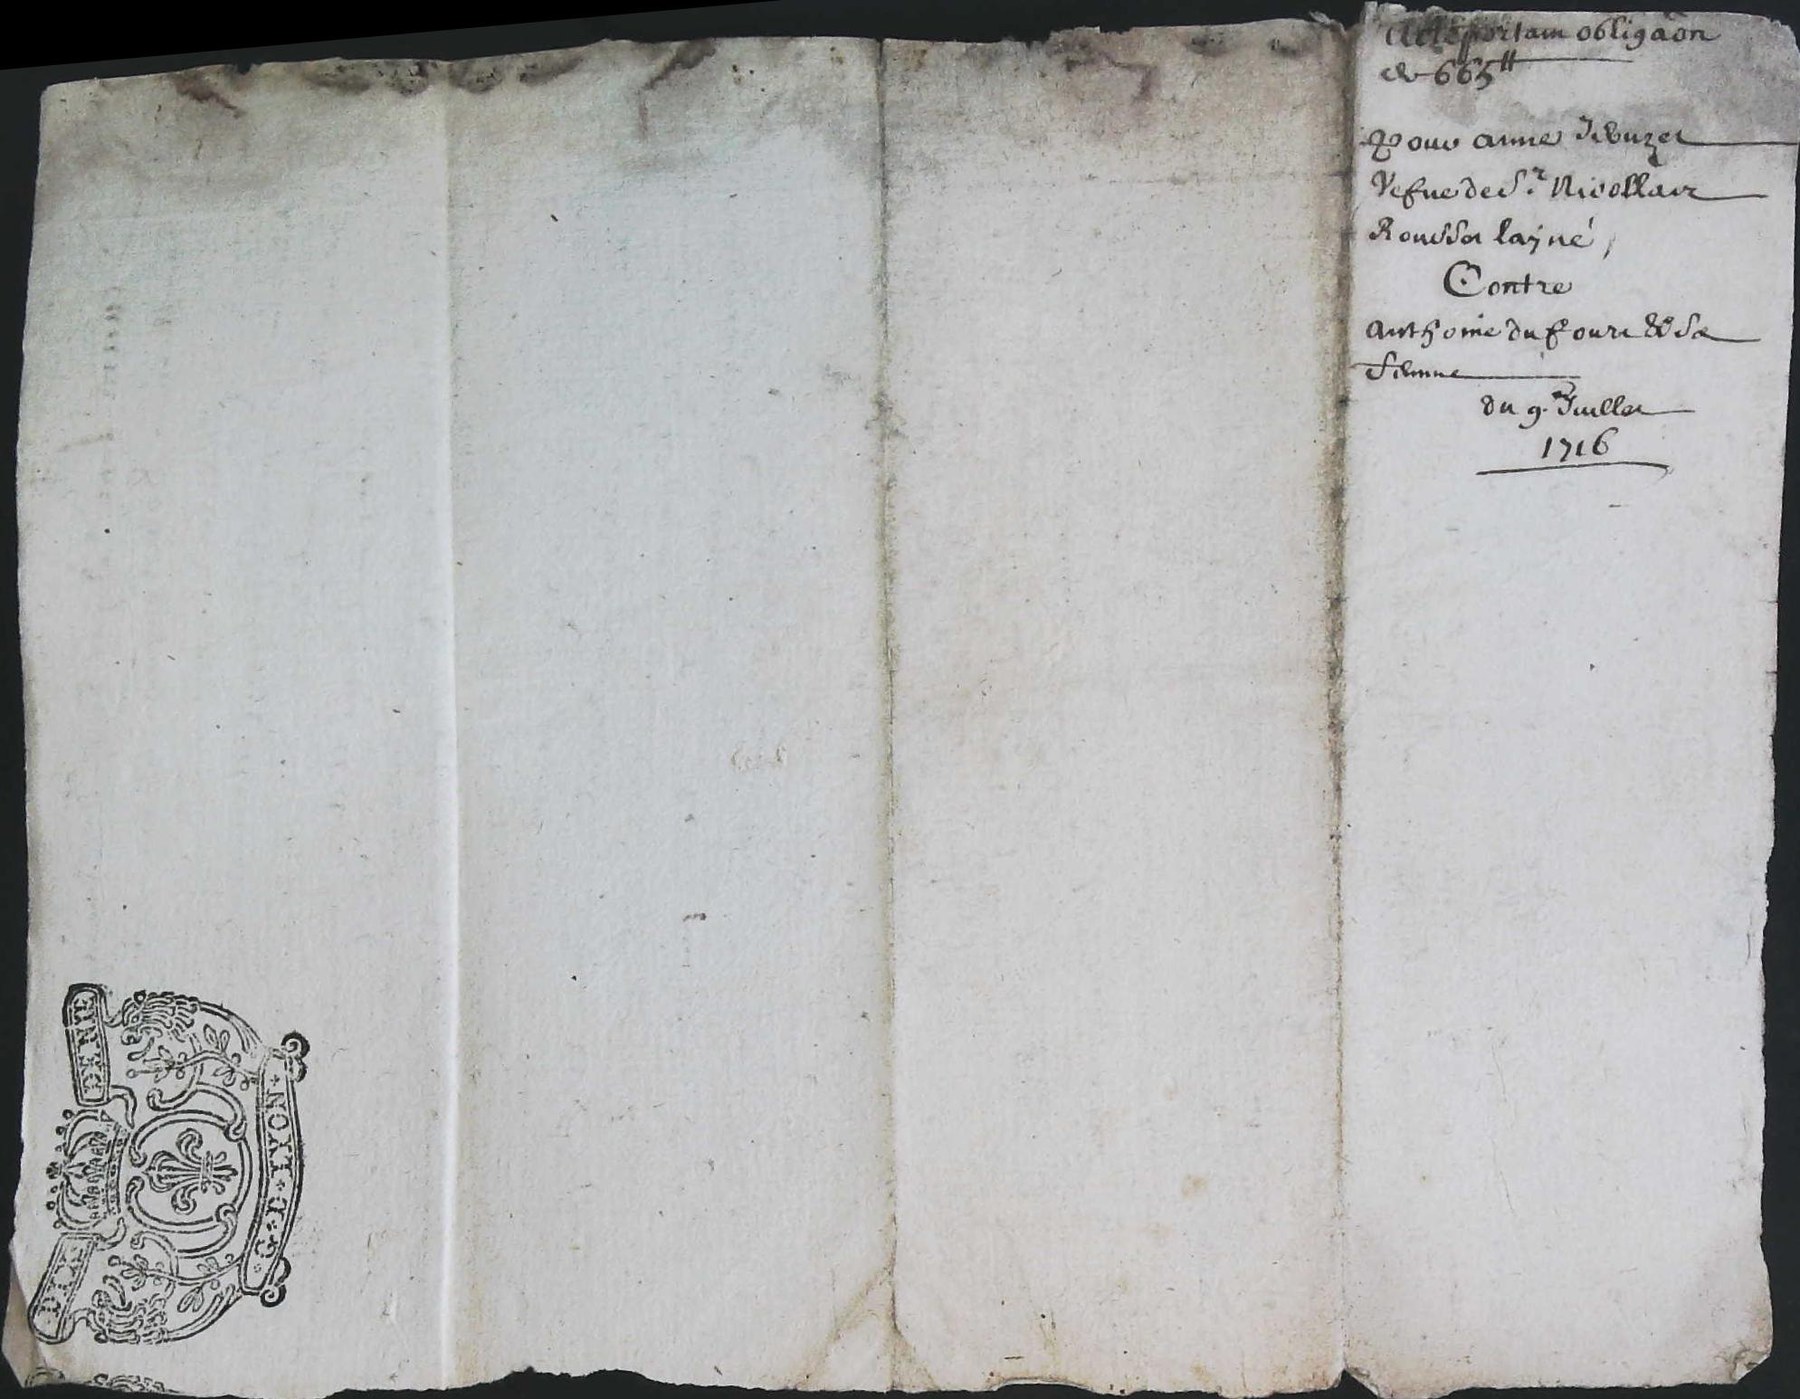 Acte portant obligaõn
de 665ᵗᵗ
Pour anne
Vefue de Sʳ. Nicollas
Rousset layné,
Contre
Anthoine du four & Sa
femme
du 9.ᵉ Juillet
1716
DIX DENIE
G · D · LYON